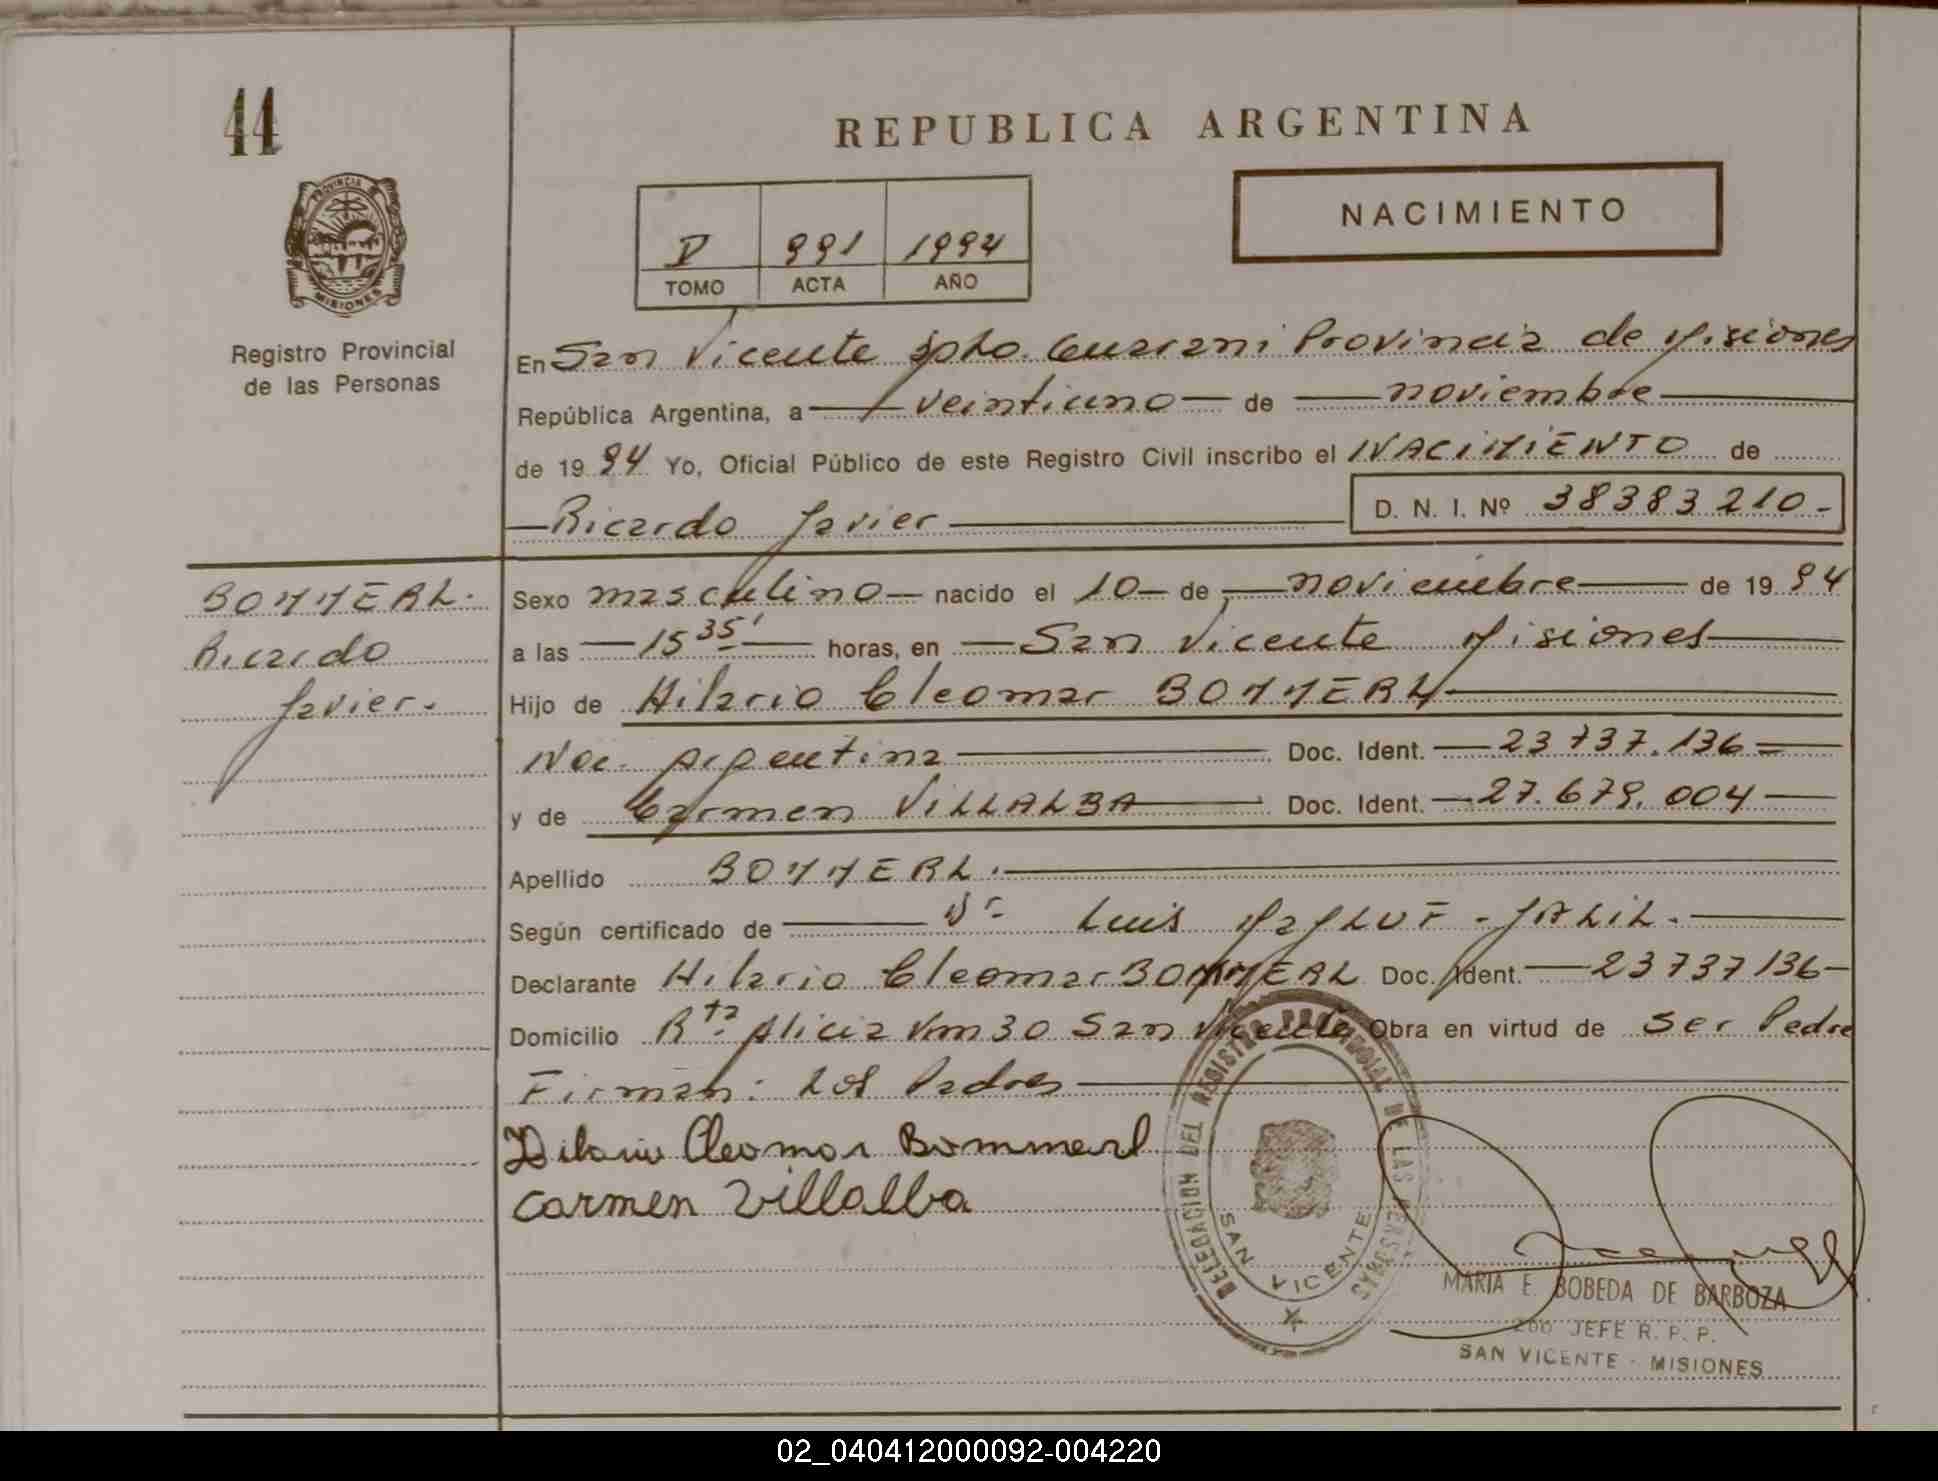 44
REPUBLICA ARGENTINA
PROVINCIA DE
MISIONES
NACIMIENTO
V 991 1994
TOMO ACTA AÑO
Registro Provincial
de las Personas
En San Vicente Dpto. Guarani Provincia de Misiones
República Argentina, a veintiuno de noviembre
de 19 94 Yo, Oficial Público de este Registro Civil inscribo el NACIMIENTO de
Ricardo Javier D. N. I. Nº 38383210-
BOMMERL.
Ricardo
Javier.
Sexo masculino nacido el 10 de noviembre de 19 94
a las 15 35' horas, en San Vicente Misiones
Hijo de Hilario Cleomar BOMMERL
Nac. Argentina Doc. Ident. 23737.136
y de Carmen VILLALBA Doc. Ident. 27.679.004
Apellido BOMMERL.
Según certificado de Dr Luis MALUF - JALIL.
Declarante Hilario Cleomar BOMMERL Doc. Ident. 23737136
Domicilio Rta Alicia Km 30 San Vicente Obra en virtud de ser Padre
Firman: Los Padres
Hilario Cleomar Bommerl
Carmen Villalba
DELEGACION DEL REGISTRO PROVINCIAL DE LAS PERSONAS
SAN VICENTE
MARIA E. BOBEDA DE BARBOZA
2do JEFE R. P. P.
SAN VICENTE - MISIONES
02_040412000092-004220